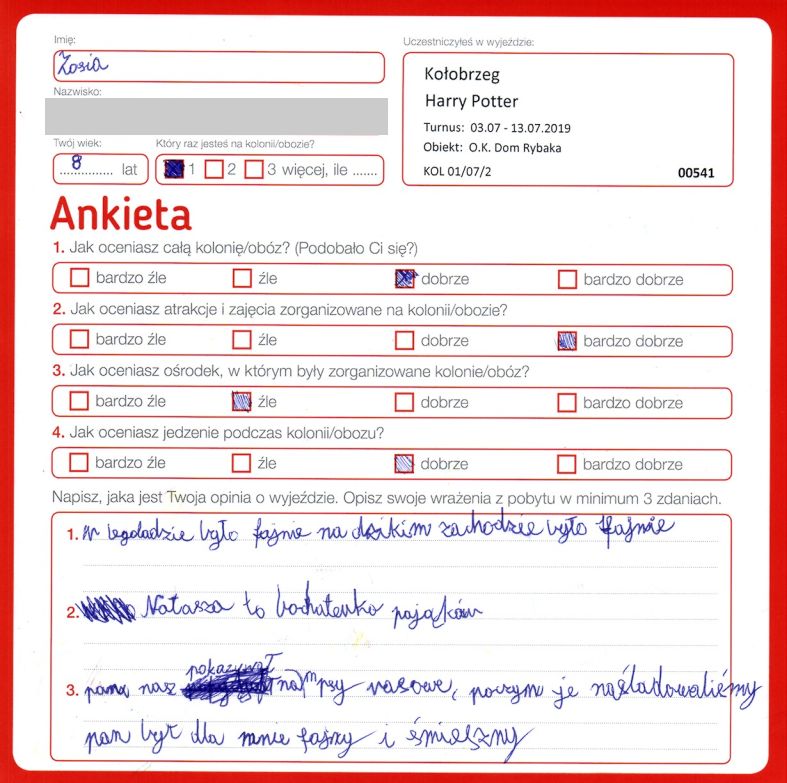 Imię:
Uczestniczyłeś w wyjeździe:
Zosia
Kołobrzeg
Harry Potter
Turnus: 03.07 - 13.07.2019
Obiekt: O.K. Dom Rybaka
KOL 01/07/2 00541
Nazwisko:
Twój wiek:
Który raz jesteś na kolonii/obozie?
8 lat
1 2 3 więcej, ile .......
Ankieta
1. Jak oceniasz całą kolonię/obóz? (Podobało Ci się?)
bardzo źle źle dobrze bardzo dobrze
2. Jak oceniasz atrakcje i zajęcia zorganizowane na kolonii/obozie?
bardzo źle źle dobrze bardzo dobrze
3. Jak oceniasz ośrodek, w którym były zorganizowane kolonie/obóz?
bardzo źle źle dobrze bardzo dobrze
4. Jak oceniasz jedzenie podczas kolonii/obozu?
bardzo źle źle dobrze bardzo dobrze
Napisz, jaka jest Twoja opinia o wyjeździe. Opisz swoje wrażenia z pobytu w minimum 3 zdaniach.
1. W legoladzie było fajnie na dzikim zachodzie było fajnie
2. Natasza to bochaterka pająków
pokazywał
3. pan nasz nam psy rasowe, poczym je naśladowaliśmy
pan był dla mnie fajny i śmieszny